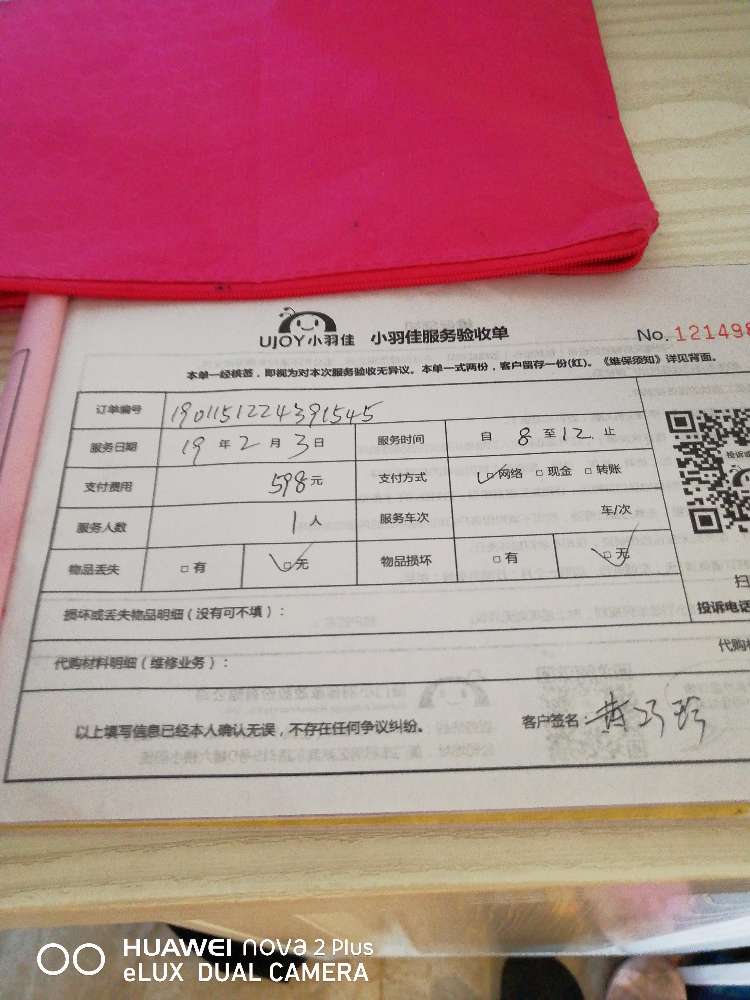 UJOY小羽佳 小羽佳服务验收单 No. 121498
本单一经核签，即视为对本次服务验收无异议。本单一式两份，客户留存一份(红)。《维保须知》详见背面。
订单编号 1901151224391545
服务日期 19 年 2 月 3 日 服务时间 自 8 至 12 止
支付费用 598 元 支付方式 网络 现金 转账
服务人数 1 人 服务车次 车/次
物品丢失 有 无 物品损坏 有 无
扫
损坏或丢失物品明细（没有可不填）： 投诉电话
代购材料明细（维修业务）： 代购
以上填写信息已经本人确认无误，不存在任何争议纠纷。 客户签名：黄巧珍
HUAWEI nova 2 Plus
eLUX DUAL CAMERA